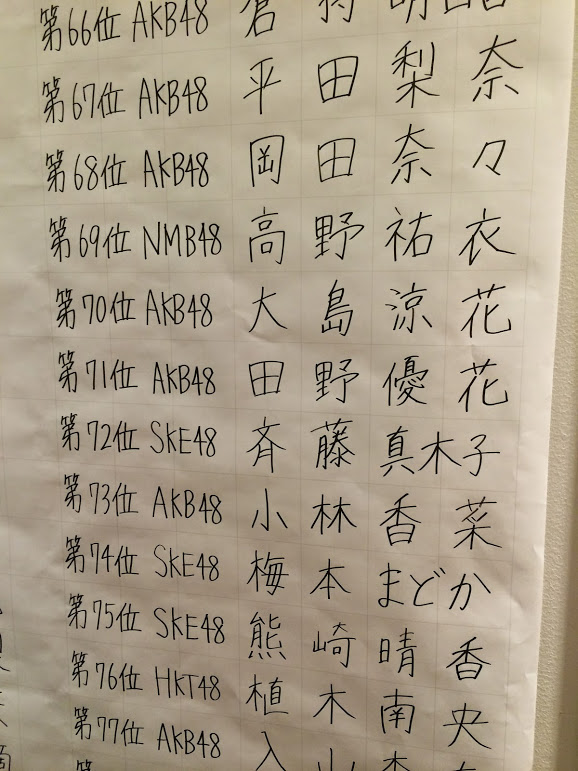 第66位 AKB48 倉持明日香
第67位 AKB48 平田梨奈
第68位 AKB48 岡田奈々
第69位 NMB48 高野祐衣
第70位 AKB48 大島涼花
第71位 AKB48 田野優花
第72位 SKE48 斉藤真木子
第73位 AKB48 小林香菜
第74位 SKE48 梅本まどか
第75位 SKE48 熊崎晴香
第76位 HKT48 植木南央
第77位 AKB48 入山杏奈